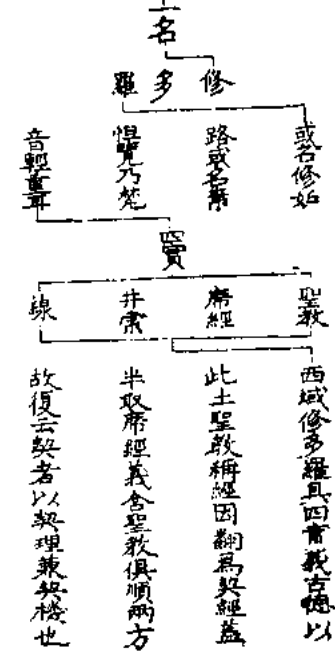 二名
修多羅
或名修妬
路或名素
怛覽乃梵
音輕重耳
四實
聖教
席經
井索
線
西域修多羅具四實義古德以
此土聖教稱經因翻為契經蓋
半取席經義含聖教俱順兩方
故復云契者以契理兼契機也